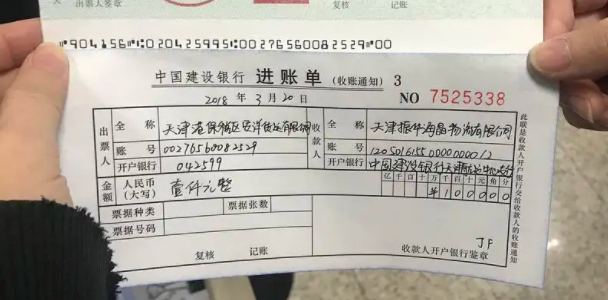 出票人签章
复核 记账
⑈904156⑈020425995⑆00276560082529⑈00
中国建设银行 进账单 (收账通知) 3
2018 年 3 月 20 日
NO 7525338
出票人
全 称
天津港保税区
有限
账 号
00276560082529
开户银行
042599
收款人
全 称
天津振华
物流有限
账 号
开户银行
中国建设银行天津
金额
人民币
(大写)
壹仟元整
亿 千 百 十 万 千 百 十 元 角 分
¥100000
票据种类
票据张数
票据号码
复核 记账
JF
收款人开户银行签章
此联是收款人开户银行交给收款人的收账通知